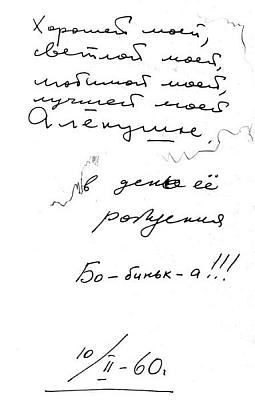 Хорошей моей,
светлой моей,
любимой моей,
лучшей моей
Аленушке.
в день её
рождения
Бо-биньк-а!!!
10/II-60г.